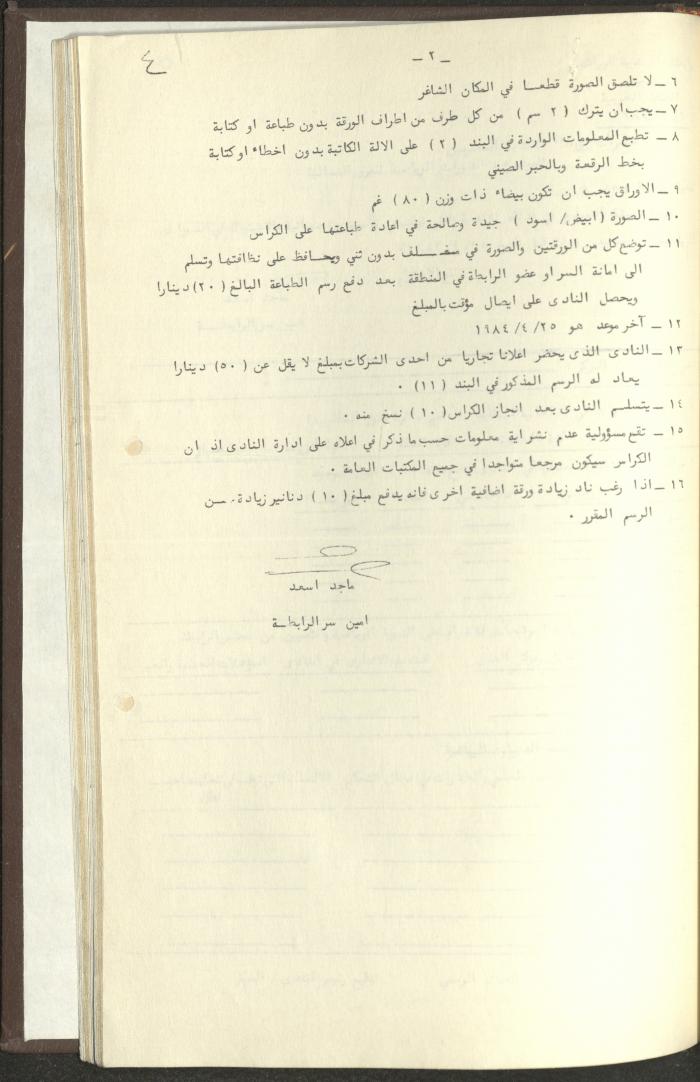 ٤
- ٢ -
٦ - لا تلصق الصورة قطعا في المكان الشاغر
٧ - يجب ان يترك ( ٢ سم ) من كل طرف من اطراف الورقة بدون طباعة او كتابة
٨ - تطبع المعلومات الواردة في البند (٢) على الالة الكاتبة بدون اخطاء او كتابة
بخط الرقعة وبالحبر الصيني
٩ - الاوراق يجب ان تكون بيضاء ذات وزن (٨٠) غم
١٠ - الصورة (ابيض/ اسود ) جيدة وصالحة في اعادة طباعتها على الكراس
١١ - توضع كل من الورقتين والصورة في مغلف بدون ثني ويحافظ على نظافتها وتسلم
الى امانة السر او عضو الرابطة في المنطقة بعد دفع رسم الطباعة البالغ (٢٠) دينارا
ويحصل النادى على ايصال مؤقت بالمبلغ
١٢ - آخر موعد هو ٢٥/ ٤/ ١٩٨٤
١٣ - النادى الذى يحضر اعلانا تجاريا من احدى الشركات بمبلغ لا يقل عن (٥٠) دينارا
يعاد له الرسم المذكور في البند (١١) .
١٤ - يتسلم النادى بعد انجاز الكراس (١٠) نسخ منه .
١٥ - تقع مسؤولية عدم نشر اية معلومات حسب ما ذكر في اعلاه على ادارة النادى اذ ان
الكراس سيكون مرجعا متواجدا في جميع المكتبات العامة .
١٦ - اذا رغب ناد زيادة ورقة اضافية اخرى فانه يدفع مبلغ (١٠) دنانير زيادة عن
الرسم المقرر .
ماجد اسعد
امين سر الرابطة